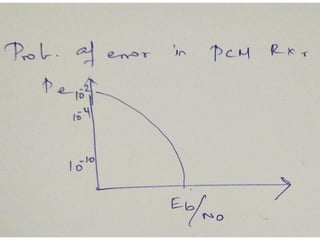 Prob. of error in PCM Rxr
Pe
10-2
10-4
10-10
Eb/No